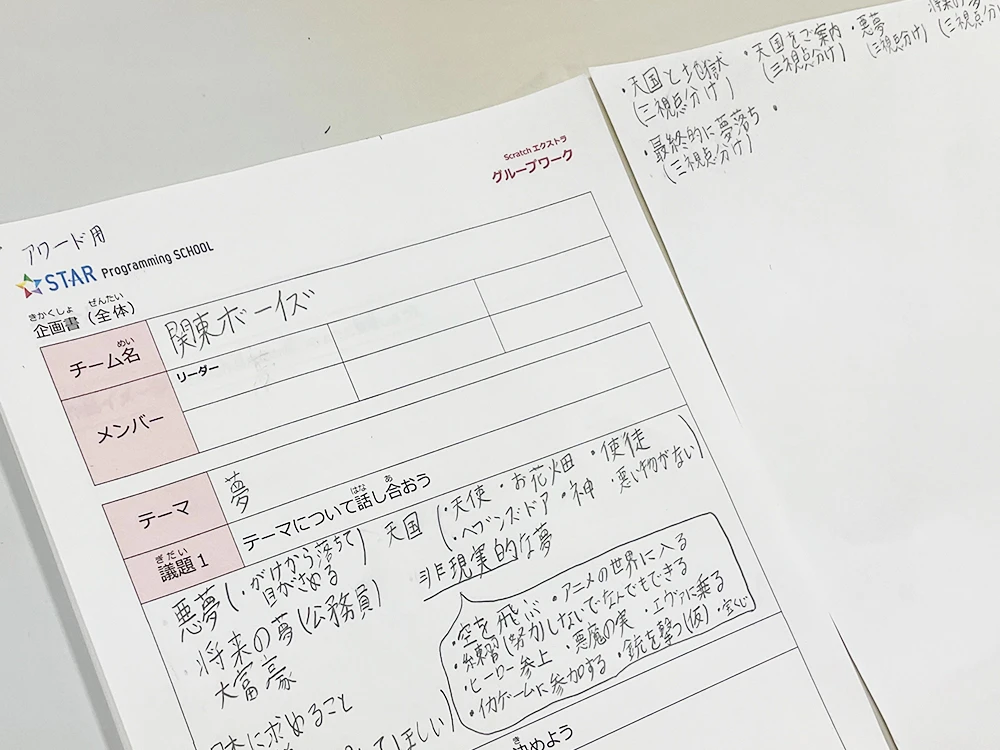 アワード用
STAR Programming SCHOOL
Scratchエクストラ
グループワーク
きかくしょ ぜんたい
企画書（全体）
めい
チーム名
関東ボーイズ
メンバー
リーダー
テーマ
夢
ぎだい
議題1
はな あ
テーマについて話し合おう
悪夢(・がけから落ちて
目がさめる)
天国(・天使・お花畑・使徒
・ヘブンズドア・神・悪い物がない)
将来の夢(公務員)
大富豪
非現実的な夢
・空を飛ぶ・アニメの世界に入る
・練習(努力)しないでなんでもできる
・ヒーロー参上・悪魔の実・エヴァに乗る
・イカゲームに参加する・銃を撃つ(仮)・宝くじ
に求めること
してほしい)
めよう
・天国と地獄
(三視点分け)
・天国をご案内
(三視点分け)
・悪夢
(三視点分け)
将来の夢
(三視点分け
・最終的に夢落ち
(三視点分け)
・